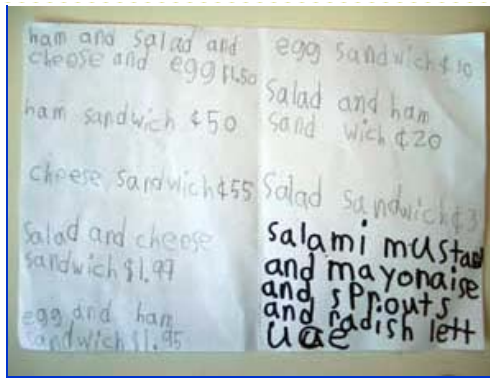 ham and salad and
cheese and egg $1.50
ham sandwich ¢50
cheese sandwich ¢55
salad and cheese
sandwich $1.99
egg and ham
sandwich $1.95
egg sandwich ¢10
Salad and ham
sand wich ¢20
Salad sandwich ¢3
salami mustad
and mayonaise
and sprouts
and radish lett
uae